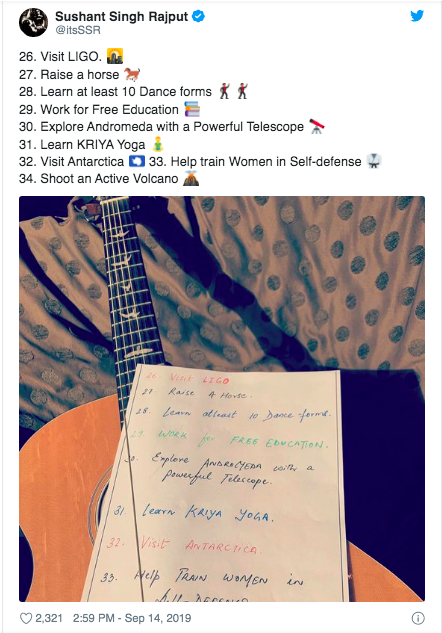 Sushant Singh Rajput
@itsSSR
26. Visit LIGO.
27. Raise a horse
28. Learn at least 10 Dance forms
29. Work for Free Education
30. Explore Andromeda with a Powerful Telescope
31. Learn KRIYA Yoga
32. Visit Antarctica 33. Help train Women in Self-defense
34. Shoot an Active Volcano
26 Visit LIGO
27 Raise A Horse.
28. Learn atleast 10 Dance-forms.
29. WORK for FREE EDUCATION.
30. Explore ANDROMEDA with a
Powerful Telescope.
31. Learn KRIYA YOGA.
32. Visit ANTARCTICA.
33. Help TRAIN WOMEN in
2,321 2:59 PM - Sep 14, 2019